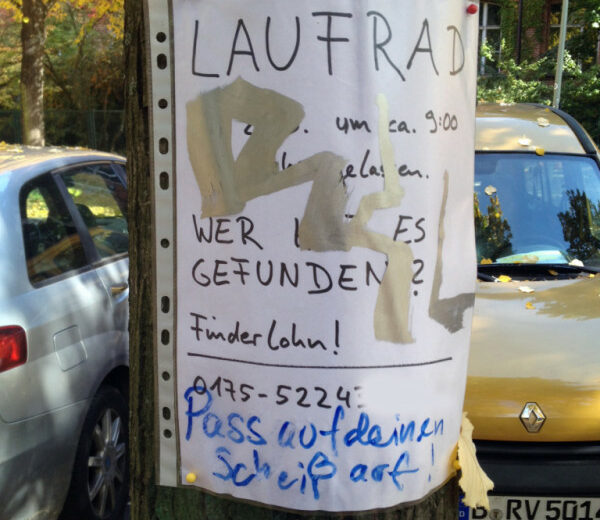 LAUFRAD
um ca. 9:00
gelassen.
WER ES
GEFUNDEN ?
Finderlohn!
0175-5224
Pass auf deinen
Scheiß auf!
B RV 5014